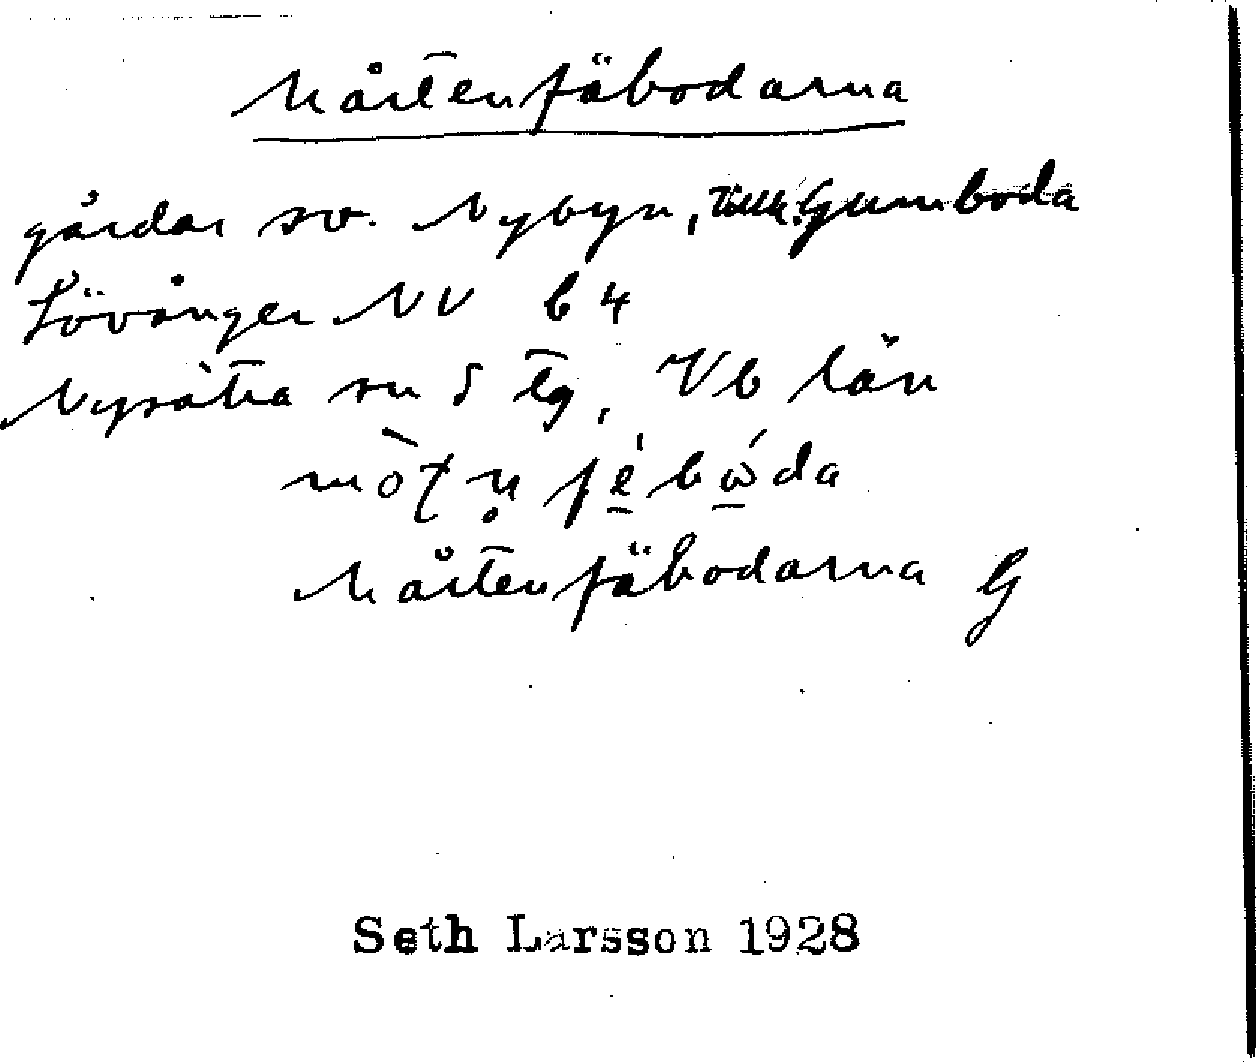 Mårtenfäbodarna
gårdar sv. Nybyn, Tillh. Gumboda
Lövånger NV b 4
Nysätra sn S tg, Vb län
Mårtenfäbodarna G
Seth Larsson 1928